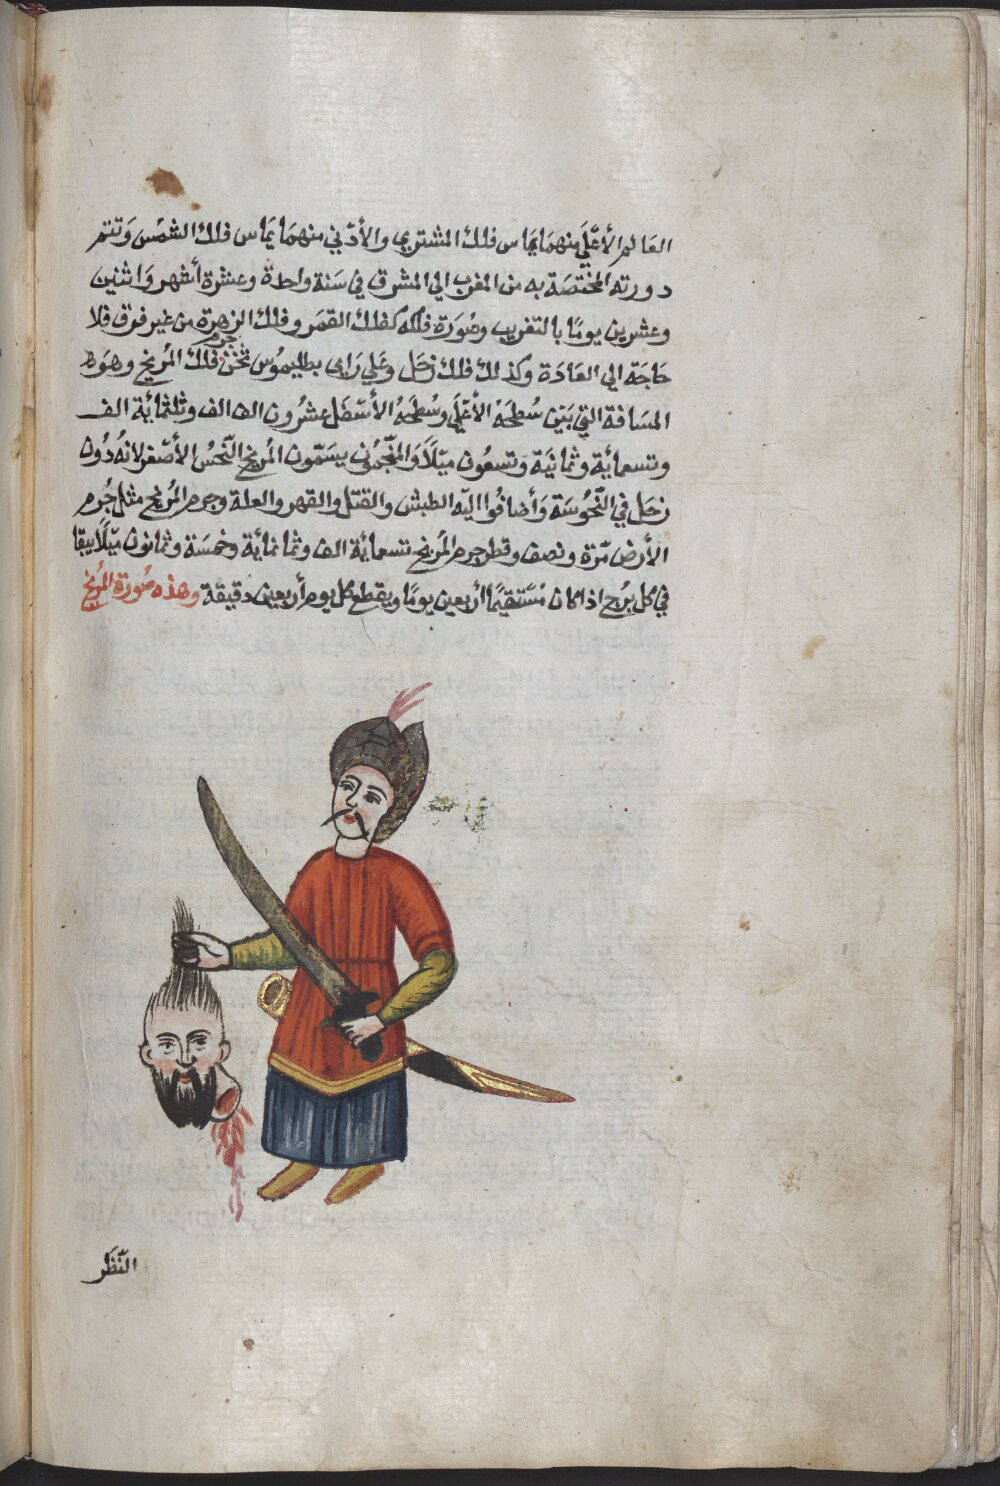 العَالم الأعْلَى منهمَا يمَاس فلك المشتري والأدْني منهمَا يمَاس فلك الشمْس وَتتم
دورته المختصَة به من المغرب الي المشرق في سَنة واحدة وعشرة أشهر وَاثنين
وعشرين يومًا بالتقريب وصُورَة فلكه كفلك القمَر وفلك الزهرة من غير فرق فلا
حَاجَة الي العَادَة وكذلك فلك زحَل وعَلي رَاي بطليمُوس ثخن جرم فلك المرّيخ وهوَ
المسَافة التي بَين سُطحَهُ الأعْلَي وسُطحَهُ الأسْفل عشرُون الف الف وثلثمائية الف
وتسعمائية وثمانيَة وتسعُون ميْلاً وَالمنجّمُون يسَمّون المرّيخ النّحسُ الأصْغر لانهُ دُون
زحَل في النّحُوسَة وَأضافُوا اليْه الطبش والقتل والقهر والعلة وجرم المرّيخ مثل جُرم
الأرض مَرّة ونصف وقطر جرم المرّيخ تسعمائية الف وثمانمائية وخمسَة وثمانون ميْلاً يبقا
في كل بُرج اذا كان مُسْتقيمًا أربعين يومًا ويقطع كل يوم أربعين دقيقة وهذه صُورة المرّيخ
النّظَر